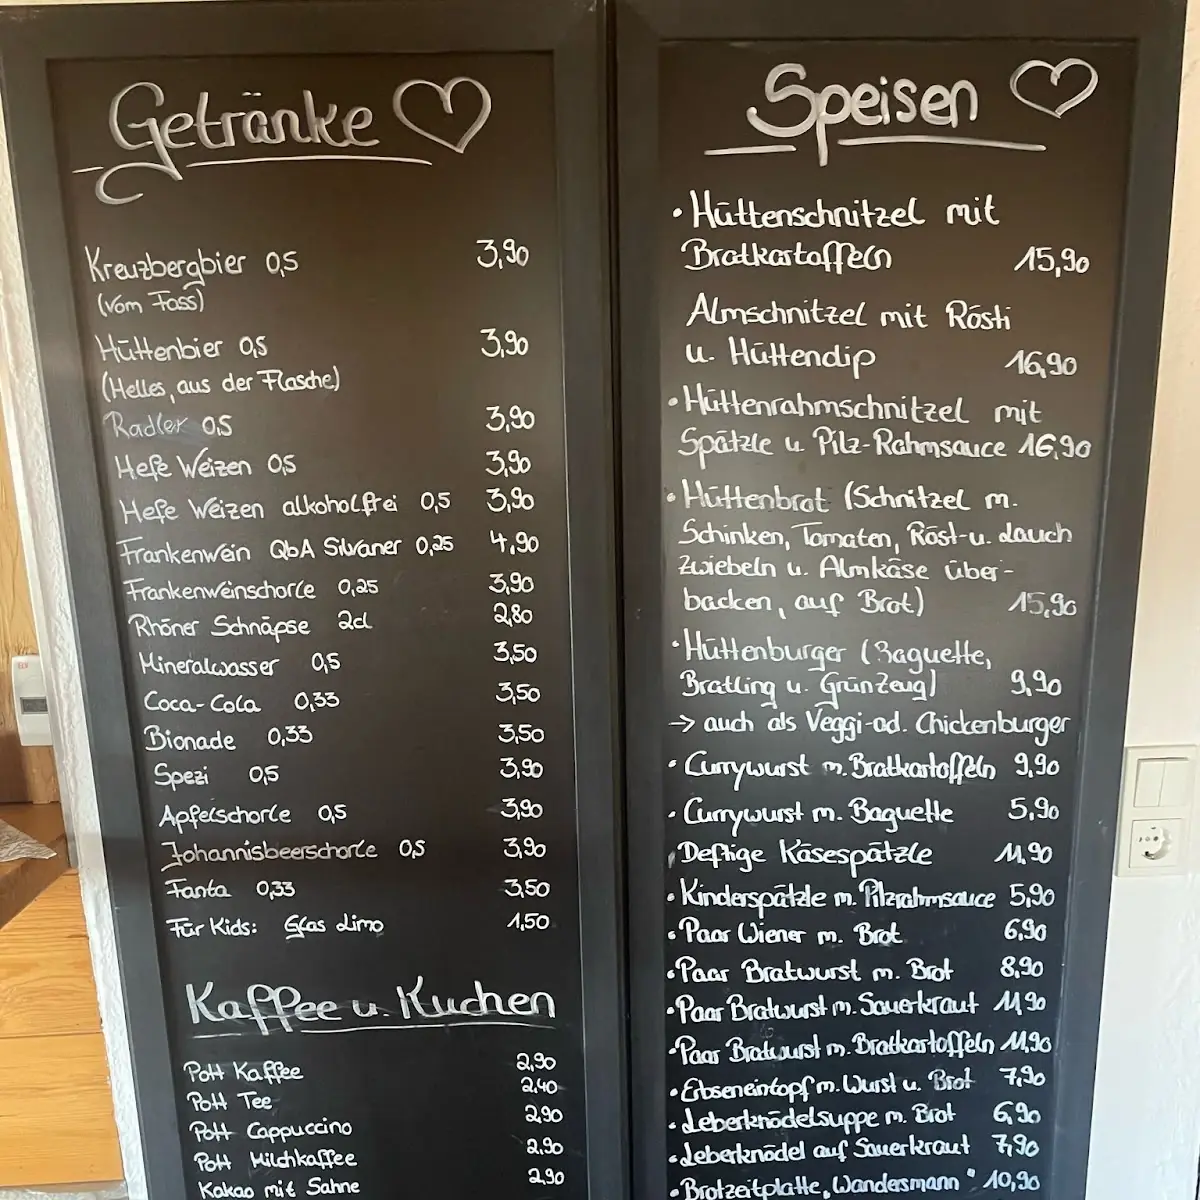 Getränke
Kreuzbergbier 0,5 3,90
(vom Fass)
Hüttenbier 0,5 3,90
(Helles, aus der Flasche)
Radler 0,5 3,90
Hefe Weizen 0,5 3,90
Hefe Weizen alkoholfrei 0,5 3,90
Frankenwein QbA Silvaner 0,25 4,90
Frankenweinschorle 0,25 3,90
Rhöner Schnäpse 2cl 2,80
Mineralwasser 0,5 3,50
Coca-Cola 0,33 3,50
Bionade 0,33 3,50
Spezi 0,5 3,90
Apfelschorle 0,5 3,90
Johannisbeerschorle 0,5 3,90
Fanta 0,33 3,50
Für Kids: Glas Limo 1,50
Kaffee u. Kuchen
Pott Kaffee 2,90
Pott Tee 2,40
Pott Cappuccino 2,90
Pott Milchkaffee 2,90
Kakao mit Sahne 2,90
Speisen
• Hüttenschnitzel mit
Bratkartoffeln 15,90
Almschnitzel mit Rösti
u. Hüttendip 16,90
• Hüttenrahmschnitzel mit
Spätzle u. Pilz-Rahmsauce 16,90
• Hüttenbrot (Schnitzel m.
Schinken, Tomaten, Röst-u. Lauch
zwiebeln u. Almkäse über-
backen, auf Brot) 15,90
• Hüttenburger (Baguette,
Bratling u. Grünzeug) 9,90
→ auch als Veggi-od. Chickenburger
• Currywurst m. Bratkartoffeln 9,90
• Currywurst m. Baguette 5,90
• Deftige Käsespätzle 11,90
• Kinderspätzle m. Pilzrahmsauce 5,90
• Paar Wiener m. Brot 6,90
• Paar Bratwurst m. Brot 8,90
• Paar Bratwurst m. Sauerkraut 11,90
• Paar Bratwurst m. Bratkartoffeln 11,90
• Erbseneintopf m. Wurst u. Brot 7,90
• Leberknödelsuppe m. Brot 6,90
• Leberknödel auf Sauerkraut 7,90
• Brotzeitplatte „Wandersmann" 10,90